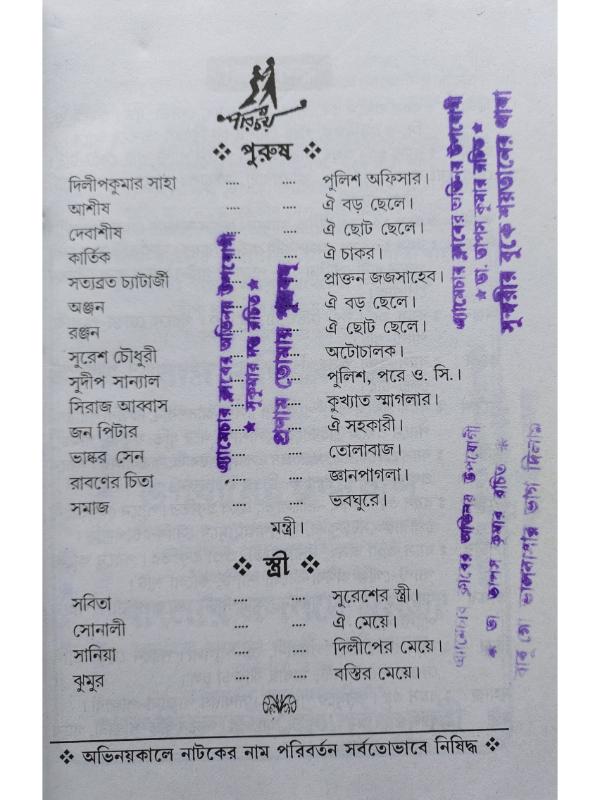 পরিচয়
❖ পুরুষ ❖
দিলীপকুমার সাহা .... .... পুলিশ অফিসার।
আশীষ .... .... ঐ বড় ছেলে।
দেবাশীষ .... .... ঐ ছোট ছেলে।
কার্তিক .... .... ঐ চাকর।
সত্যব্রত চ্যাটার্জী .... .... প্রাক্তন জজসাহেব।
অঞ্জন .... .... ঐ বড় ছেলে।
রঞ্জন .... .... ঐ ছোট ছেলে।
সুরেশ চৌধুরী .... .... অটোচালক।
সুদীপ সান্যাল .... .... পুলিশ, পরে ও. সি.।
সিরাজ আব্বাস .... .... কুখ্যাত স্মাগলার।
জন পিটার .... .... ঐ সহকারী।
ভাষ্কর সেন .... .... তোলাবাজ।
রাবণের চিতা .... .... জ্ঞানপাগলা।
সমাজ .... .... ভবঘুরে।
মন্ত্রী।
❖ স্ত্রী ❖
সবিতা .... .... সুরেশের স্ত্রী।
সোনালী .... .... ঐ মেয়ে।
সানিয়া .... .... দিলীপের মেয়ে।
ঝুমুর .... .... বস্তির মেয়ে।
❖ অভিনয়কালে নাটকের নাম পরিবর্তন সর্বতোভাবে নিষিদ্ধ ❖
এ্যামেচার ক্লাবের অভিনয় উপযোগী
★ সুকুমার দত্ত রচিত ★
প্রণাম তোমায় পুত্রবধূ
এ্যামেচার ক্লাবের অভিনয় উপযোগী
★ ডা. তাপস কুমার রচিত ★
সুন্দরীর বুকে শয়তানের থাবা
এ্যামেচার ক্লাবের অভিনয় উপযোগী
★ ডা তাপস কুমার রচিত ★